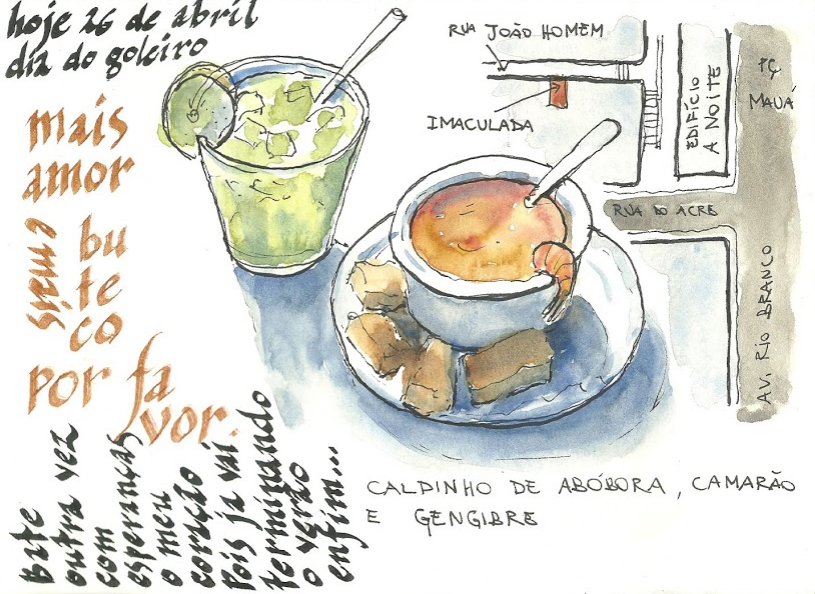 hoje 26 de abril
dia do goleiro
mais
amor
mais
bu
te
co
por fa
vor.
bate
outra vez
com
esperanças
o meu
coração
Pois já vai
terminando
o verão
enfim...
RUA JOÃO HOMEM
IMACULADA
EDIFÍCIO
A NOITE
PÇ
MAUÁ
RUA DO ACRE
AV. RIO BRANCO
CALDINHO DE ABÓBORA, CAMARÃO
E GENGIBRE